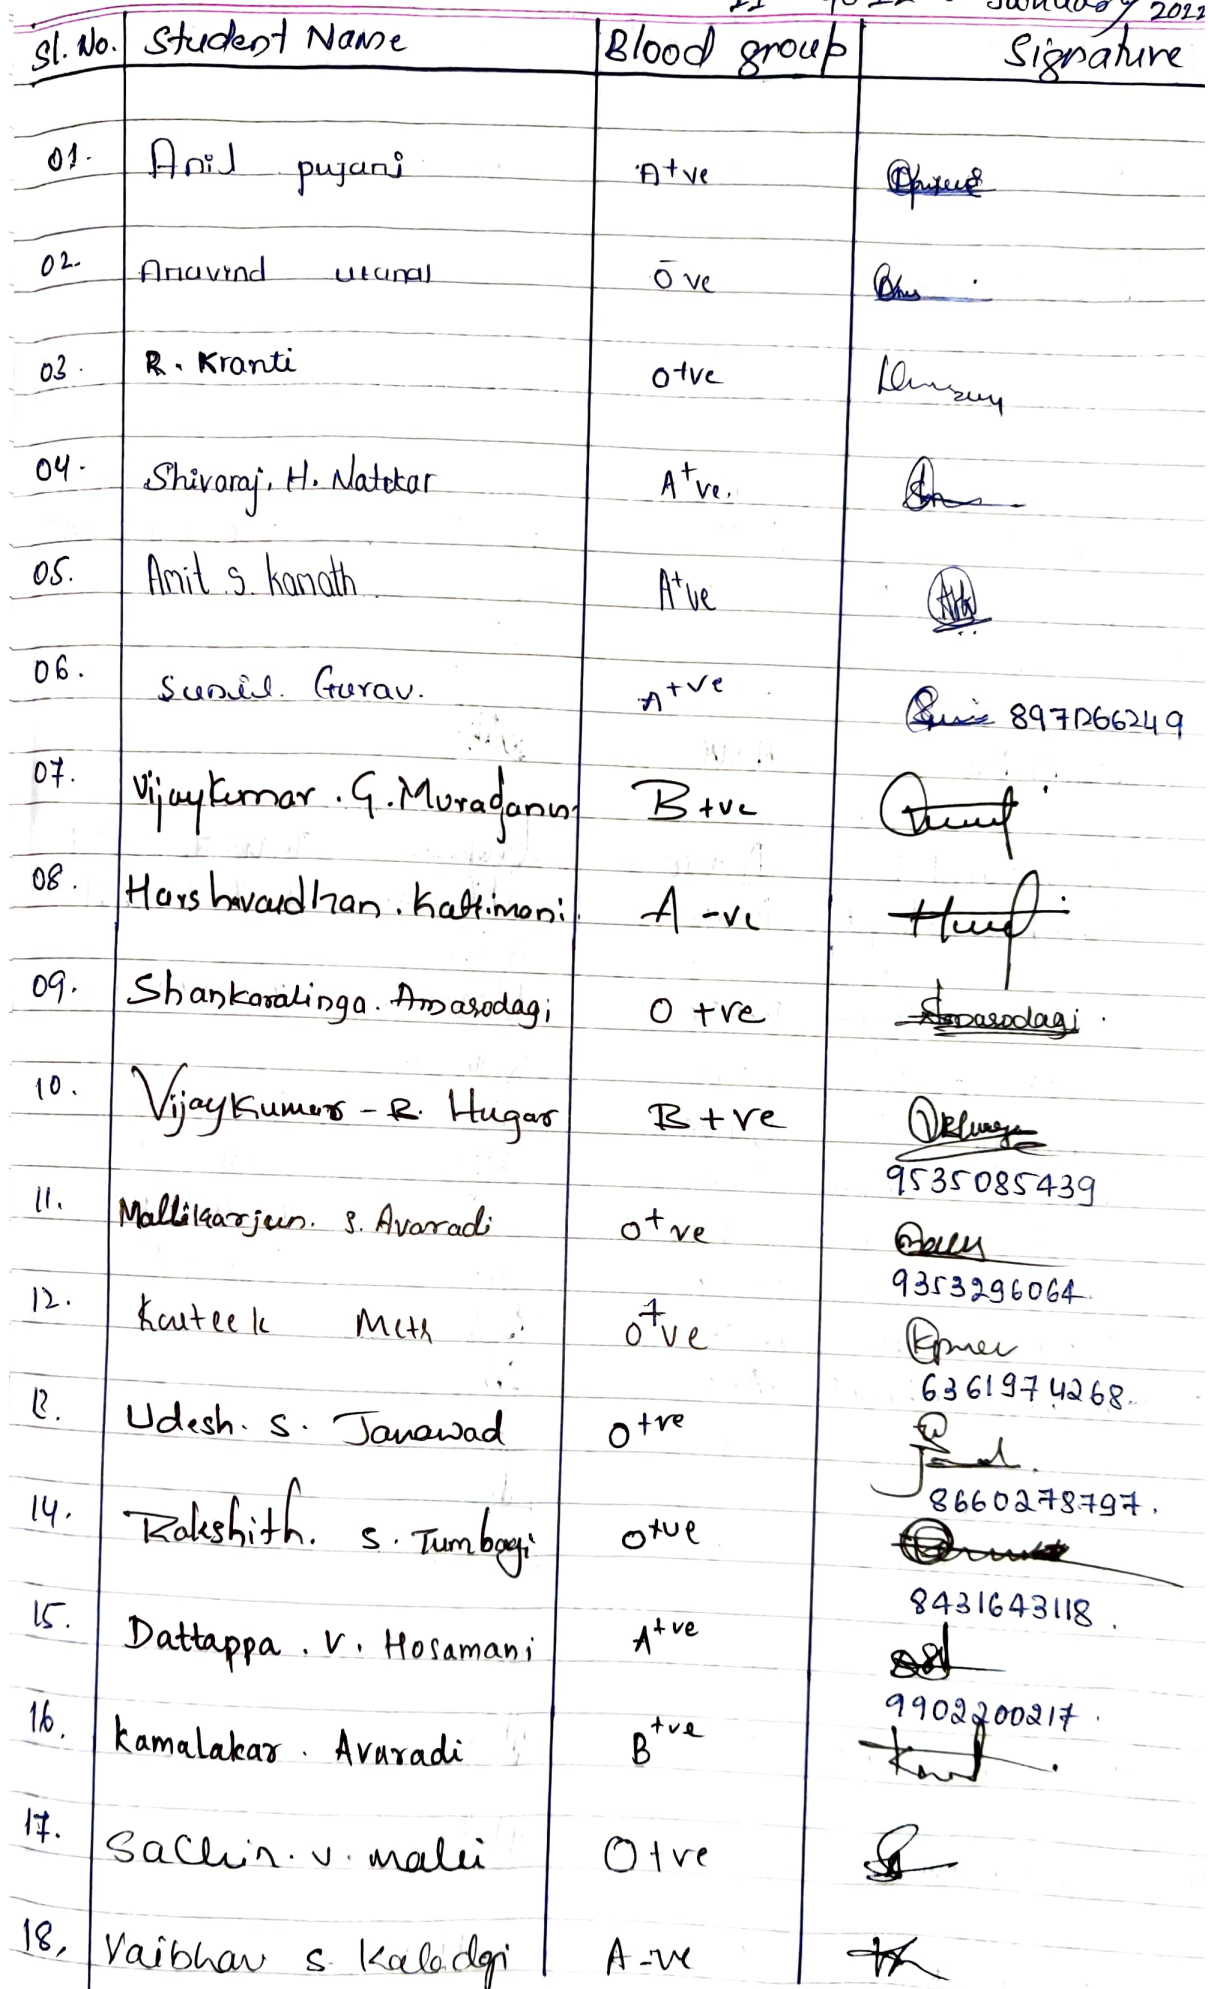 January 2022
Sl. No. Student Name Blood group Signature
01. Anil pujari A+ve
02. Aravind utanal O-ve
03. R. Kranti O+ve
04. Shivaraj. H. Natekar A+ve.
05. Amit S. Kamath A+ve
06. Sunil. Gurav. A+ve 8971266249
07. Vijaykumar. G. Muradannu B+ve
08. Harshavardhan. Kattimani. A -ve
09. Shankaralinga. Amasodagi O +ve Amasodagi.
10. Vijaykumar - R. Hugar B +ve
9535085439
11. Mallikarjun. S. Avaradi O+ve
9353296064
12. Karteek Meth O+ve
6361974268.
13. Udesh. S. Janawad O+ve
8660278797.
14. Rakshith. S. Tumbagi O+ve
8431643118
15. Dattappa. V. Hosamani A+ve
9902200217.
16. Kamalakar. Avaradi B+ve
17. Sachin. V. mali O+ve
18. Vaibhav S. Kaladgi A-ve